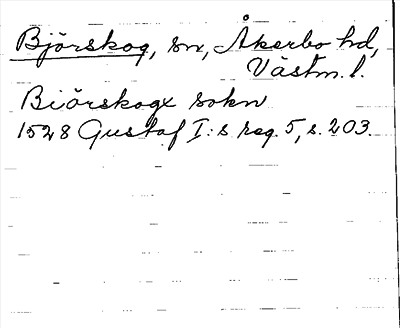 Björskog, sn, Åkerbo hd,
Västm. l.
Biörskogx sokn
1528 Gustaf I:s reg. 5, s. 203.